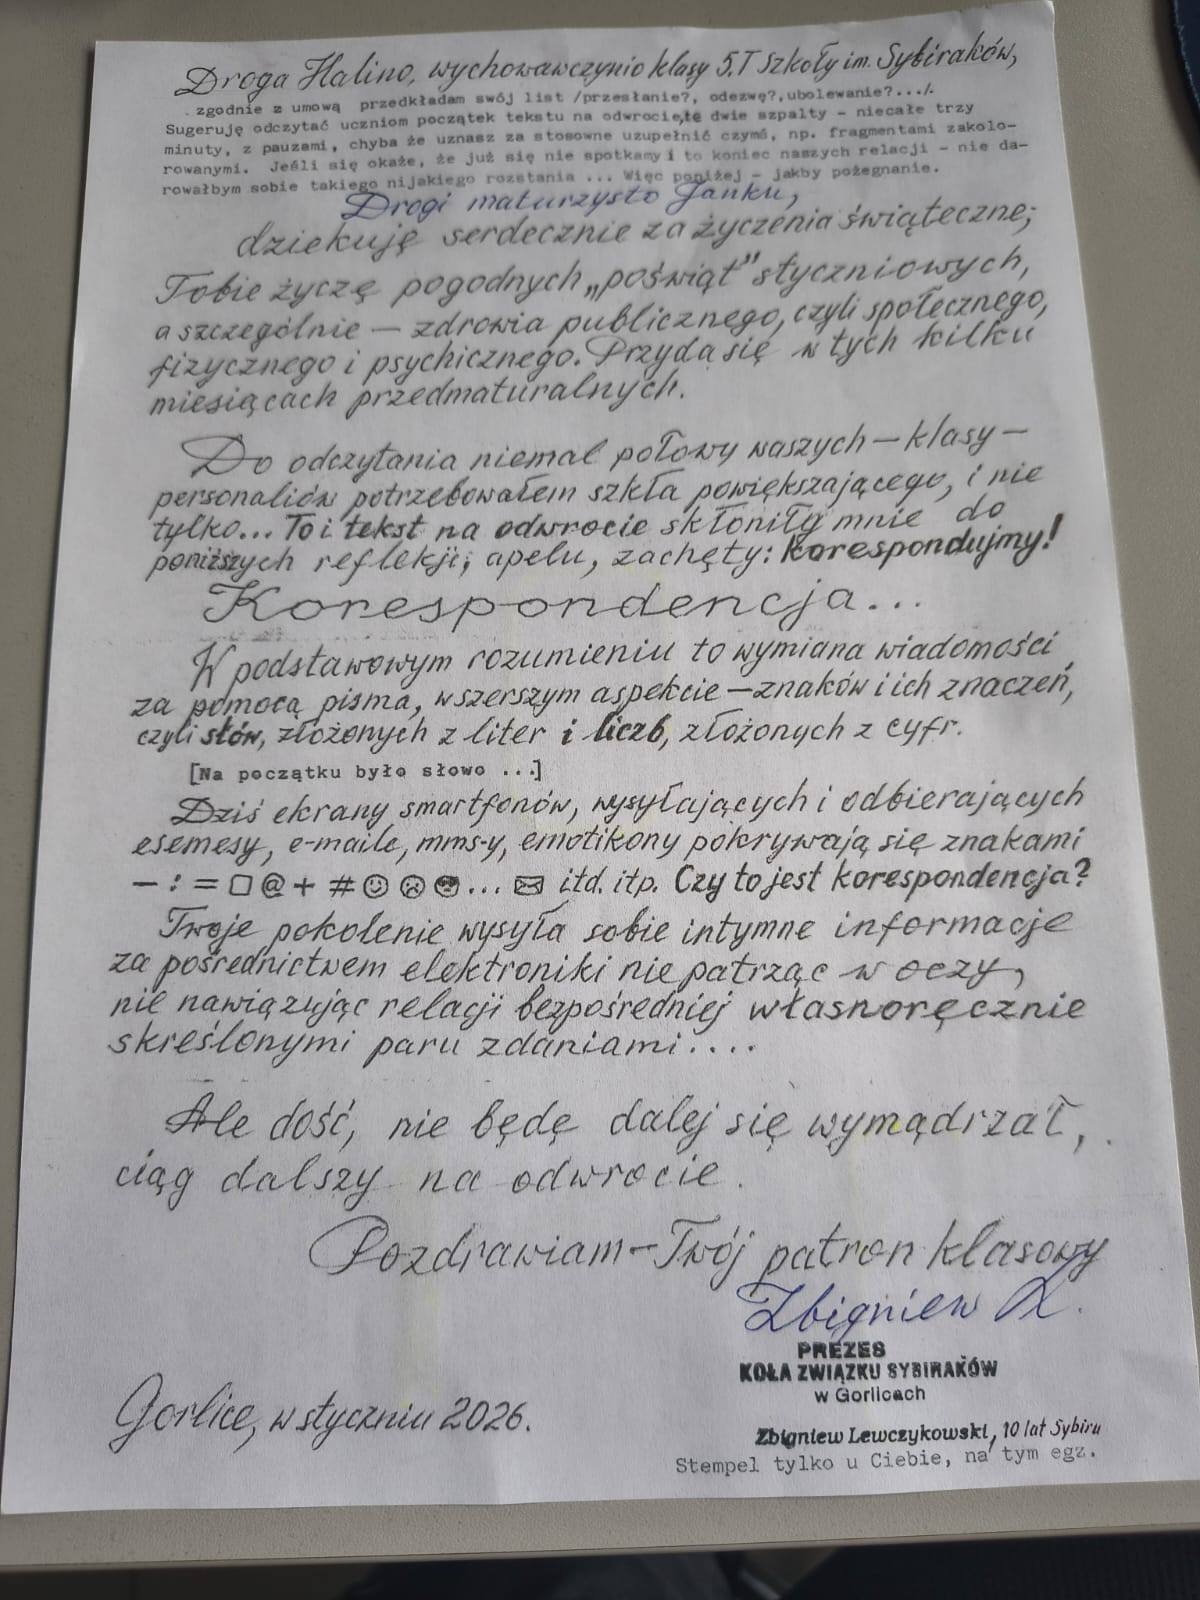 Droga Halino, wychowawczynio klasy 5.T Szkoły im. Sybiraków,
zgodnie z umową przedkładam swój list /przesłanie?, odezwę?, ubolewanie?.../.
Sugeruję odczytać uczniom początek tekstu na odwrocie, te dwie szpalty - niecałe trzy
minuty, z pauzami, chyba że uznasz za stosowne uzupełnić czymś, np. fragmentami zakolo-
rowanymi. Jeśli się okaże, że już się nie spotkamy i to koniec naszych relacji - nie da-
rowałbym sobie takiego nijakiego rozstania ... Więc poniżej - jakby pożegnanie.
Drogi maturzysto Janku,
dziekuję serdecznie za życzenia świąteczne;
Tobie życzę pogodnych „poświąt” styczniowych,
a szczególnie — zdrowia publicznego, czyli społecznego,
fizycznego i psychicznego. Przyda się w tych kilku
miesiącach przedmaturalnych.
Do odczytania niemal połowy waszych — klasy —
personaliów potrzebowałem szkła powiększającego, i nie
tylko... To i tekst na odwrocie skłoniły mnie do
poniższych refleksji, apelu, zachęty: korespondujmy!
Korespondencja...
W podstawowym rozumieniu to wymiana wiadomości
za pomocą pisma, w szerszym aspekcie — znaków i ich znaczeń,
czyli słów, złożonych z liter i liczb, złożonych z cyfr.
[Na początku było słowo ...]
Dziś ekrany smartfonów, wysyłających i odbierających
esemesy, e-maile, mms-y, emotikony pokrywają się znakami
— : = □ @ + # ☺ ☹ 😎 ... ✉ itd. itp. Czy to jest korespondencja?
Twoje pokolenie wysyła sobie intymne informacje
za pośrednictwem elektroniki nie patrząc w oczy,
nie nawiązując relacji bezpośredniej własnoręcznie
skreślonymi paru zdaniami....
Ale dość, nie będę dalej się wymądrzał,
ciąg dalszy na odwrocie.
Pozdrawiam — Twój patron klasowy
Zbigniew L.
PREZES
KOŁA ZWIĄZKU SYBIRAKÓW
w Gorlicach
Gorlice, w styczniu 2026.
Zbigniew Lewczykowski, 10 lat Sybiru
Stempel tylko u Ciebie, na tym egz.